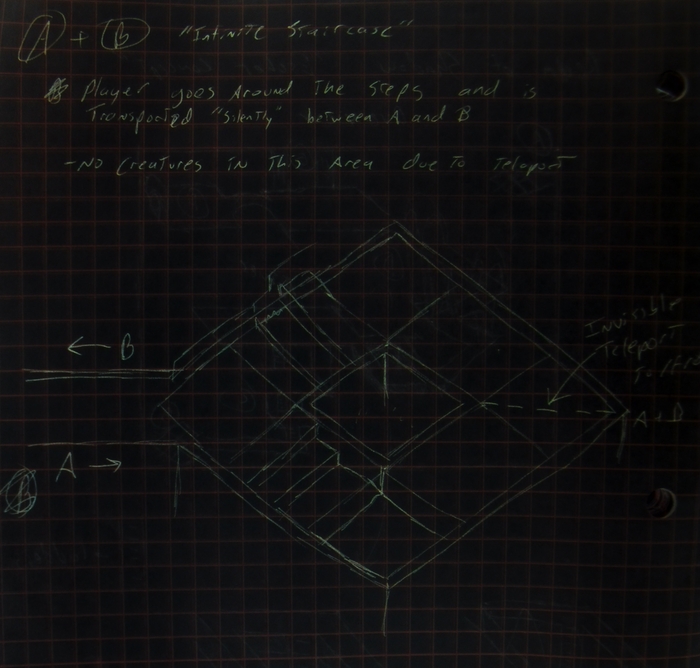 A + B "Infinite Staircase"
Player goes Around The Steps and is
Transported "silently" between A and B
- No Creatures in This Area due To Teleport
Invisible
Teleport
← B
A + B
A →
B